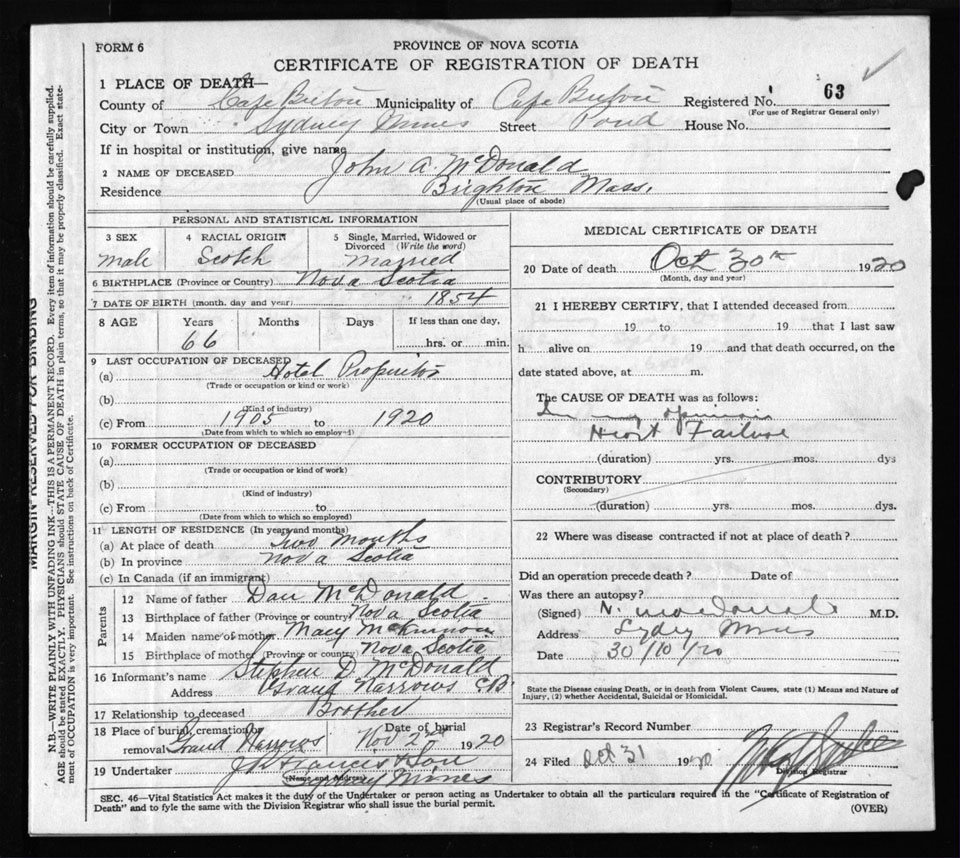 FORM 6
PROVINCE OF NOVA SCOTIA
CERTIFICATE OF REGISTRATION OF DEATH
1 PLACE OF DEATH—
County of Cape Breton Municipality of Cape Breton Registered No. 63
(For use of Registrar General only)
City or Town Sydney Mines Street Pond House No.
If in hospital or institution, give name
2 NAME OF DECEASED John A. McDonald
Residence Brighton Mass.
(Usual place of abode)
PERSONAL AND STATISTICAL INFORMATION
3 SEX 4 RACIAL ORIGIN 5 Single, Married, Widowed or Divorced (Write the word)
male Scotch married
6 BIRTHPLACE (Province or Country) Nova Scotia
7 DATE OF BIRTH (month, day and year) 1854
8 AGE Years Months Days If less than one day,
66 hrs. or min.
9 LAST OCCUPATION OF DECEASED
(a) Hotel Propritor
(Trade or occupation or kind or work)
(b)
(Kind of industry)
(c) From 1905 to 1920
(Date from which to which so employed)
10 FORMER OCCUPATION OF DECEASED
(a)
(Trade or occupation or kind of work)
(b)
(Kind of industry)
(c) From to
(Date from which to which so employed)
11 LENGTH OF RESIDENCE (In years and months)
(a) At place of death Two Months
(b) In province Nova Scotia
(c) In Canada (if an immigrant)
Parents
12 Name of father Dan McDonald
13 Birthplace of father (Province or country) Nova Scotia
14 Maiden name of mother Mary McKinnon
15 Birthplace of mother (Province or country) Nova Scotia
16 Informant's name Stephen D. McDonald
Address Grand Narrows C.B.
17 Relationship to deceased Brother
18 Place of burial, cremation or removal Grand Narrows Date of burial Nov 2nd 1920
19 Undertaker Francis & Son
(Name and Address) Sydney Mines
MEDICAL CERTIFICATE OF DEATH
20 Date of death Oct 30th 1920
(Month, day and year)
21 I HEREBY CERTIFY, that I attended deceased from
19 to 19 that I last saw
h alive on 19 and that death occurred, on the
date stated above, at m.
The CAUSE OF DEATH was as follows:
In my opinion
Heart Failure
(duration) yrs. mos. dys
CONTRIBUTORY
(Secondary)
(duration) yrs. mos. dys.
22 Where was disease contracted if not at place of death?
Did an operation precede death? Date of
Was there an autopsy?
(Signed) N. MacDonald M.D.
Address Sydney Mines
Date 30/10/20
State the Disease causing Death, or in death from Violent Causes, state (1) Means and Nature of
Injury, (2) whether Accidental, Suicidal or Homicidal.
23 Registrar's Record Number
24 Filed Oct 31 1920
Division Registrar
SEC. 46—Vital Statistics Act makes it the duty of the Undertaker or person acting as Undertaker to obtain all the particulars required in the "Certificate of Registration of
Death" and to fyle the same with the Division Registrar who shall issue the burial permit. (OVER)
MARGIN RESERVED FOR BINDING
N.B.—WRITE PLAINLY WITH UNFADING INK—THIS IS A PERMANENT RECORD. Every item of information should be carefully supplied.
AGE should be stated EXACTLY. PHYSICIANS should STATE CAUSE OF DEATH in plain terms, so that it may be properly classified. Exact state-
ment of OCCUPATION is very important. See instructions on back of Certificate.